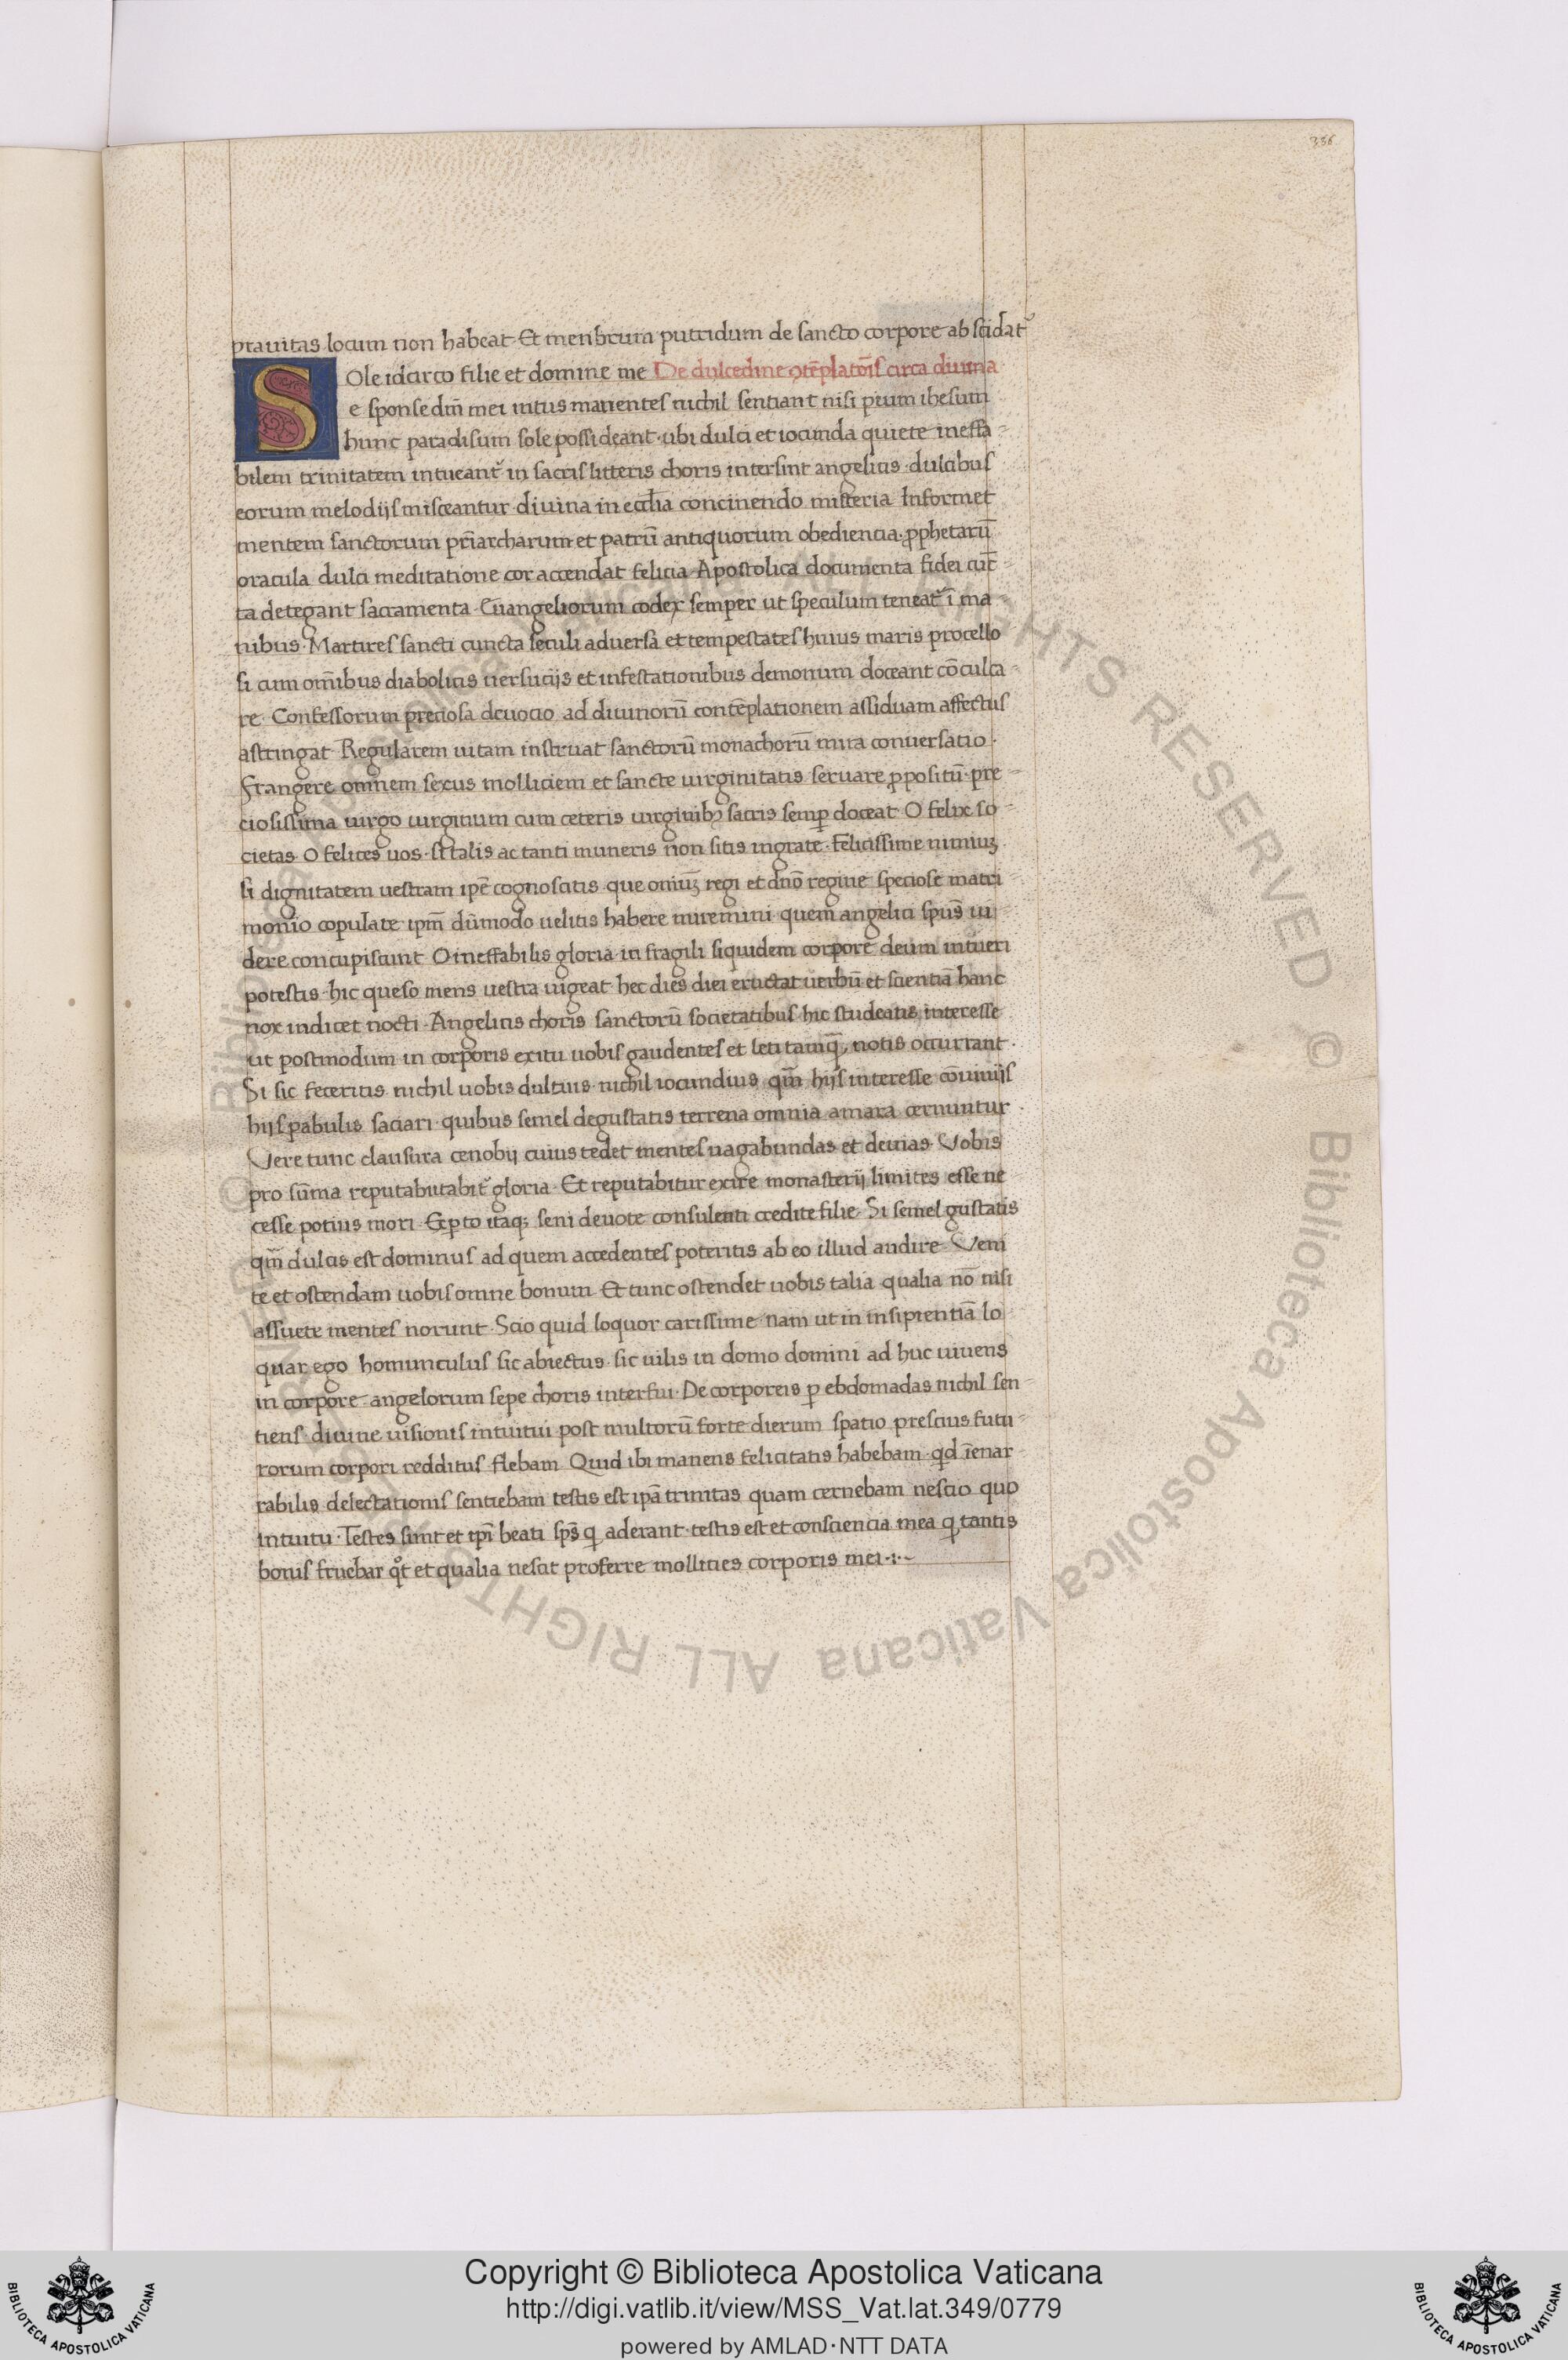 336
prauitas locum non habeat Et menbrum putridum de sancto corpore abscidat᷑
Sole idcirco filie et domine me De dulcedine ꝯtēplatōis circa diuina
e sponse dn̄i mei intus manentes nichil sentiant nisi pium ihesum
hunc paradisum sole possideant · ubi dulci et iocunda quiete ineffa-
bilem trinitatem intueant᷑ in sacris litteris choris intersint angelicis · dulcibus
eorum melodijs misceantur · diuina in eccl̄ia concinendo misteria Informet
mentem sanctorum pr̄iarcharum et patrū antiquorum obediencia · ꝓphetarū
oracula dulci meditatione cor accendat felicia Apostolica documenta fidei cūc-
ta detegant sacramenta · Euangeliorum codex semper ut speculum teneat᷑ ī ma-
nibus · Martires sancti cuncta seculi aduersa et tempestates huius maris procello
si cum om̄ibus diabolicis uersucijs et infestationibus demonum doceant cōculca-
re · Confessorum preciosa deuocio ad diuinorū contēplationem assiduam affectus
astringat Regularem uitam instruat sanctorū monachorū mira conuersatio ·
Frangere omnem sexus molliciem et sancte uirginitatis seruare ꝓpositū · pre-
ciosissima uirgo uirginum cum ceteris uirginibꝫ sacris semꝑ doceat O felix so-
cietas O felices uos · si talis ac tanti muneris non sitis ingrate · Felicissime nimiuꝫ
si dignitatem uestram ipē cognoscitis · que omiuꝫ regi et dn̄o regine speciose matri
monio copulate ipm̄ dūmodo uelitis habere miremini quem angelici spūs ui-
dere concupiscunt O ineffabilis gloria in fragili siquidem corpore deum intueri
potestis · hic queso mens uestra uigeat hec dies diei eructat uerbū et scientiā hanc
nox indicet nocti · Angelicis choris sanctorū societatibus hic studeatis interesse
ut postmodum in corporis exitu uobis gaudentes et leti tamq̄ notis occurrant ·
Si sic feceritis nichil uobis dulcius nichil iocundius qm̄ hijs interesse cōuiuijs
hijs pabulis saciari · quibus semel degustatis terrena omnia amara cernuntur ·
Vere tunc clausura cenobij cuius tedet mentes uagabundas et deuias Vobis
pro sūma reputabutabit᷑ gloria · Et reputabitur exire monasterij limites esse ne
cesse potius mori · Exꝑto itaqꝫ seni deuote consulenti credite filie · Si semel gustatis
qm̄ dulcis est dominus ad quem accedentes poteritis ab eo illud audire · Veni
te et ostendam uobis omne bonum · Et tunc ostendet uobis talia qualia nō nisi
assuete mentes norunt · Scio quid loquor carissime nam ut in insipientiā lo
quar ego homunculus sic abiectus · sic uilis in domo domini ad huc uiuens
in corpore angelorum sepe choris interfui · De corporeis ꝑ ebdomadas nichil sen-
tiens diuine uisionis intuitui post multorū forte dierum spatio prescius futu-
rorum corpori redditus flebam Quid ibi manens felicitatis habebam · qd īenar
rabilis delectationis sentiebam testis est ipā trinitas quam cernebam nescio quo
intuitu · Testes sunt et ipī beati sps̄ q̄ aderant · testis est et consciencia mea q tantis
bonis fruebar qͦt et qualia nescit proferre mollities corporis mei ·:·~
© Biblioteca Apostolica Vaticana ALL RIGHTS RESERVED © Biblioteca Apostolica Vaticana ALL RIGHTS RESERVED
Copyright © Biblioteca Apostolica Vaticana
http://digi.vatlib.it/view/MSS_Vat.lat.349/0779
powered by AMLAD·NTT DATA
BIBLIOTECA APOSTOLICA VATICANA
BIBLIOTECA APOSTOLICA VATICANA